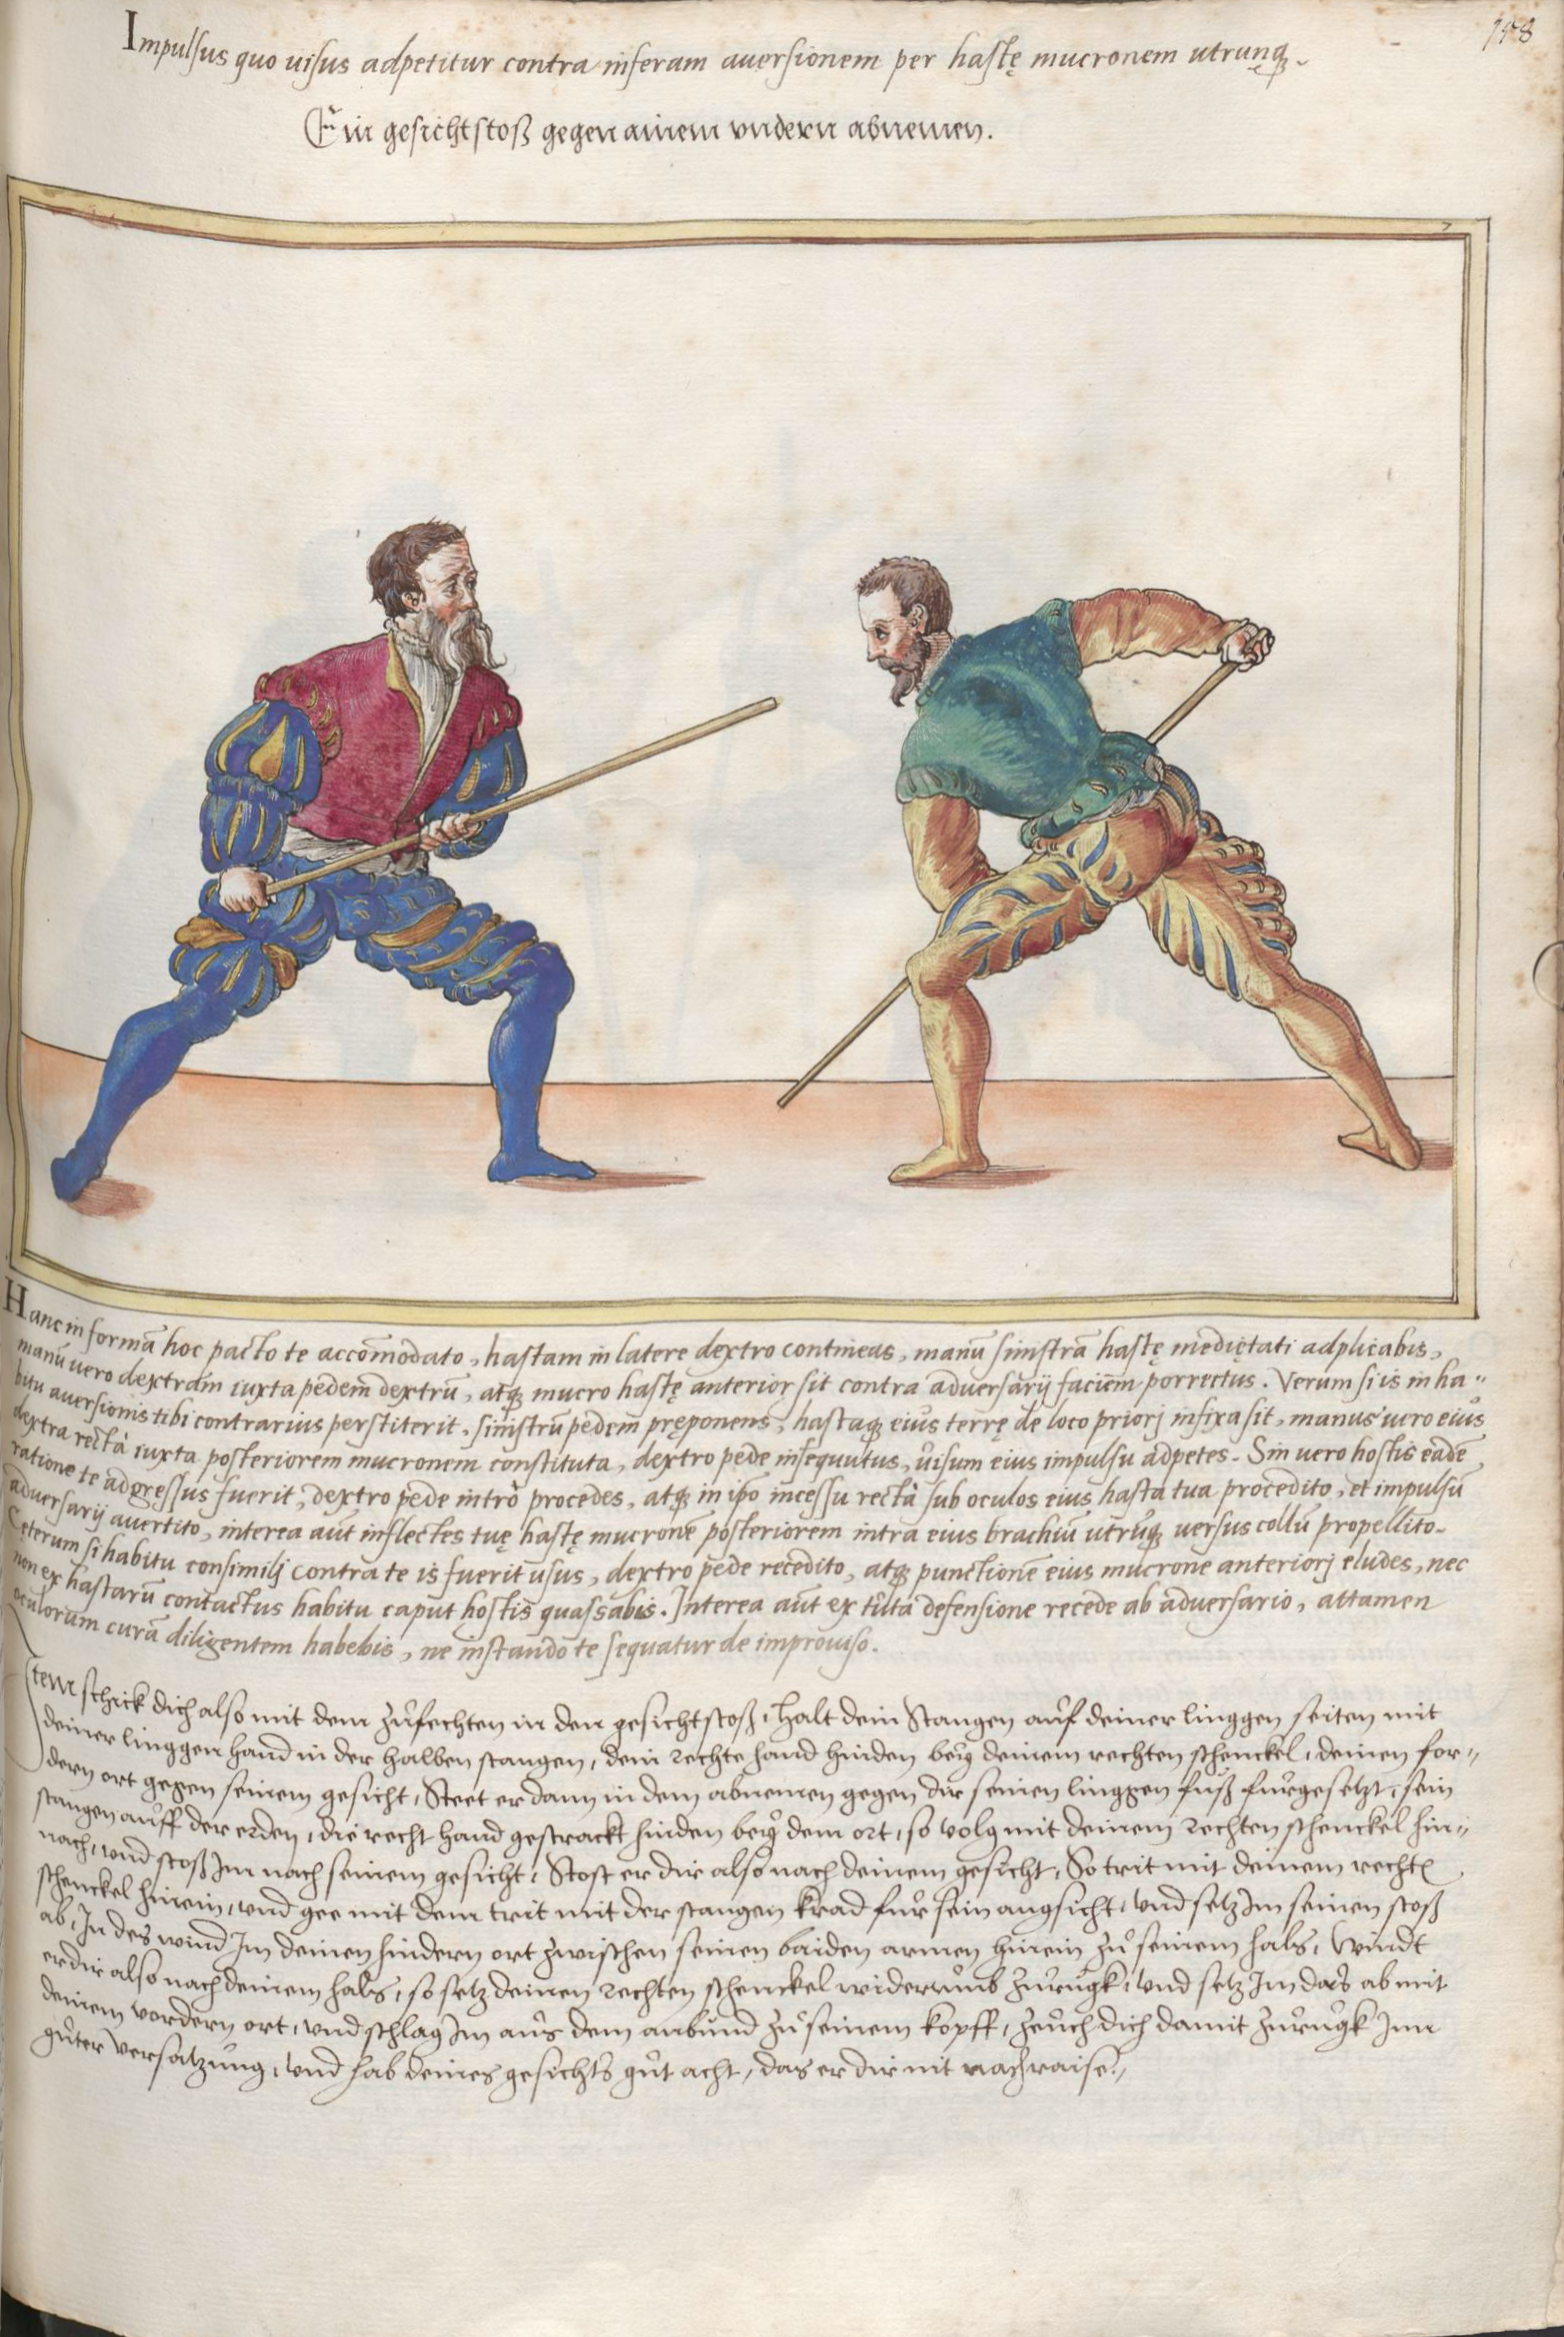 158
Impulsus quo uisus adpetitur contra inferam auersionem per hastę mucronem utrunq̨.
Ein gesichtstoß gegen ainem vndern abnemen.
Hanc in formā hoc pacto te accōmodato, hastam in latere dextro contineas, manū sinistrā hastę medietati adplicabis,
manū uero dextram iuxta pedem dextrū, atq̨ mucro hastę anterior sit contra aduersarij faciem porrectus. Verum si is in ha=
bitu auersionis tibi contrarius perstiterit, sinistrū pedem pręponens, hastaq̨ eius terrę de loco priorj infixa sit, manus uero eius
dextra rectà iuxta posteriorem mucronem constituta, dextro pede insequutus, uisum eius impulsu adpetes. Sin uero hostis eadē
ratione te adgressus fuerit, dextro pede intrò procedes, atq̨ in ip̄o incessu rectà sub oculos eius hasta tua procedito, et impulsū
aduersarij auertito, interea aūt inflectes tuę hastę mucronē posteriorem intra eius brachiū utrūq̨ uersus collū propellito.
Cęterum si habitu consimilj contra te is fuerit usus, dextro pede recedito, atq̨ punctionē eius mucrone anteriorj eludes, nec
non ex hastarū contactus habitu caput hostis quassabis. Interea aūt ex tuta defensione recede ab aduersario, attamen
oculorum curā diligentem habebis, ne instando te sequatur de improuiso.
Item schick dich also mit dem zůfechten in den gesichtstoß, halt dein Stangen auf deiner linggen seiten mit
deiner linggen hand in der halben stangen, dein rechte hand hinden beÿ deinem rechten schenckel, deinen for=
dern ort gegen seinem gesicht, Steet er dann in dem abnemen gegen dir seinen linggen fuß furgesetzt, sein
stangen auff der erden, die recht hand gestrackt hinden beÿ dem ort, so volg mit deinem rechten schenckel hin=
nach, vnd stoß Im nach seinem gesicht, Stost er dir also nach deinem gesicht, So trit mit deinem recht
schenckel hinein, vnd gee mit dem trit mit der stangen krad fur sein angsicht, vnd setz Im seinen stoß
ab, In des wind Im deinen hindern ort zwischen seinen baiden armen hinein zů seinem hals, Windt
er dir also nach deinem hals, so setz deinen rechten schenckel widerumb zurugk, vnd setz Im das ab mit
deinem vordern ort, vnd schlag Im aus dem anbund zů seinem kopff, zeuch dich damit zurugk Inn
gůter versatzung, vnd hab deines gesichts gůt acht, das er dir nit nachraise.